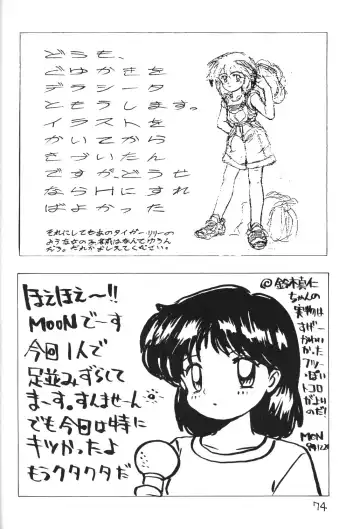 どうも、
ごゆかきを
デラシータ
ともうします。
イラストを
かいてから
きづいたん
ですが、どうせ
ならHにすれ
ばよかった
それにしてもあのタイガー・リリーの
みたいな女の子、名前はなんてゆうん
だろう。だれかおしえてください。
ほえほえ〜!!
MOONでーす
今回1人で
足並みずらして
まーす。すんませーん
でも今回は特に
キツかったよ
もうクタクタだ
@鈴木真仁
ちゃんの
実物は
すげー
かわい
かった
トコロ
がよい
のだ!
MOON
74